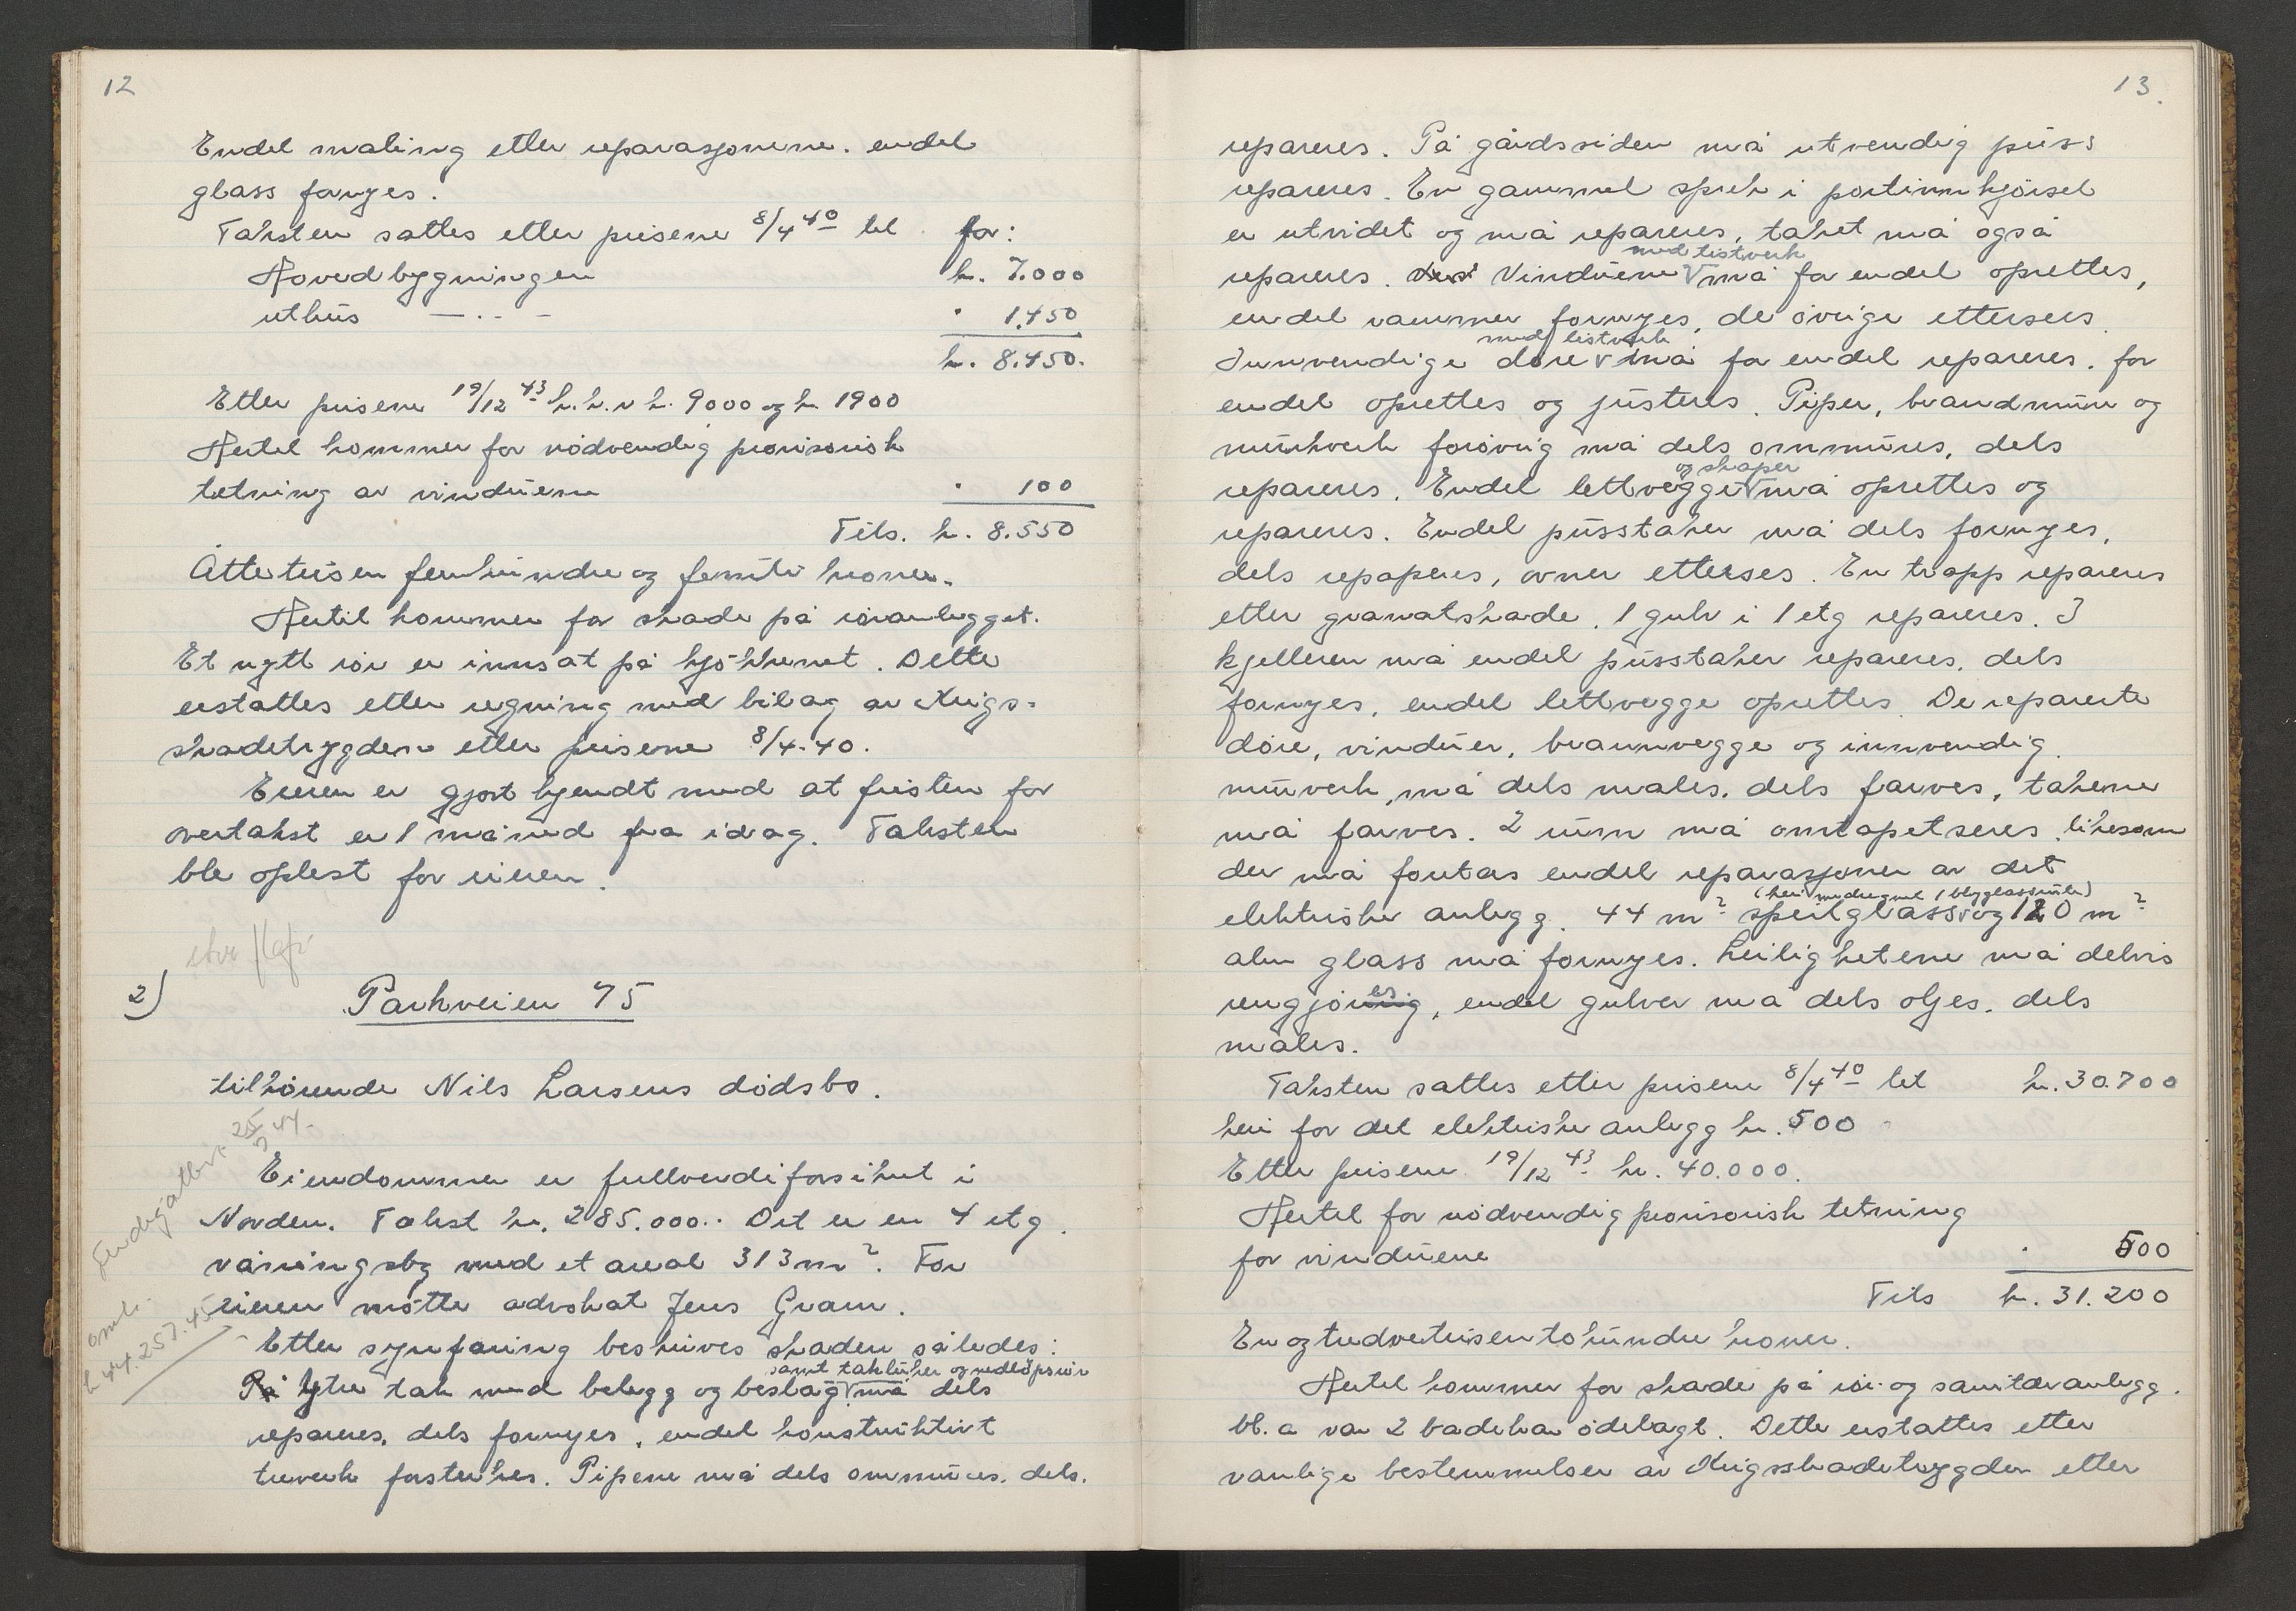 12
Endel maling etter reparasjonene. endel
glass fornyes.
Taksten sattes etter prisene 8/4 40 til for:
Hovedbygningen kr. 7.000
uthus — . . — " 1.450
kr. 8.450.
Etter prisene 19/12 43 h.h.v kr. 9000 og kr 1900
Hertil kommer for nödvendig provisorisk
tetning av vinduene " 100
Tils. kr. 8.550
Åttetusen femhundre og femti kroner.
Hertil kommer for skade på röranlegget.
Et nytt rör er innsat på kjökkenet. Dette
erstattes etter regning med bilag av Krigs-
skadetrygden etter prisene 8/4-40.
Eieren er gjort kjendt med at fristen for
overtakst er 1 måned fra idag. Taksten
ble oplest for eieren.
2)
Parkveien 75
tilhörende Nils Larsens dödsbo.
Endgjatbet 25/5 44.
Eiendommen er fullverdiforsikret i
Norden. Takst kr. 285.000.. Det er en 4 etg.
våningsbg med et areal 313 m². For
eieren mötte advokat Jens Gram.
omk.
kr 44.257.45
Etter synfaring beskrives skaden således:
samt takluker og nedlöpsrör
På Ytre tak med belegg og beslag må dels
repareres, dels fornyes, endel konstruktivt
treverk forsterkes. Pipene må dels ommures, dels.
13.
repareres. På gårdssiden må utvendig puss
repareres. En gammel sprek i portinnkjörsel
er utvidet og må repareres, taket må også
med listverk
repareres. Vinduene må for endel oprettes,
endel rammer fornyes, de övrige ettersees.
med listverk
Innvendige döre må for endel repareres, for
endel oprettes og justeres. Piper, brandmure og
murverk forövrig må dels ommures, dels
og skaper
repareres. Endel lettvegger må oprettes og
repareres. Endel pusstaker må dels fornyes,
dels repareres, ovner etterses. En trapp repareres
etter granatskade. 1 gulv i 1 etg repareres. I
kjelleren må endel pusstaker repareres, dels
fornyes, endel lettvegge oprettes. De reparerte
döre, vinduer, brannvegge og innvendig
murverk, må dels males, dels farves, takene
må farves. 2 rum må omtapetseres likesom
der må foretas endel reparasjoner av det
(heri medregnet 1 blyglassrute)
elektriske anlegg. 44 m² speilglass og 120 m²
alm glass må fornyes. Leilighetene må delvis
rengjöres, endel gulver må dels oljes, dels
males.
Taksten sattes etter prisene 8/4 40 tel kr. 30.700
heri for det elektriske anlegg kr. 500
Etter prisene 19/12 43 kr. 40.000.
Hertil for nödvendig provisorisk tetning
for vinduene " 500
Tils kr. 31.200
En og tredvetusentohundre kroner.
Hertil kommer for skade på rör- og sanitæranlegg.
bl. a var 2 badekar ödelagt. Dette erstattes etter
vanlige bestemmelser av Krigsskadetrygden etter